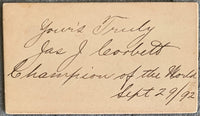 Yours Truly
Jas J Corbett
Champion of the World
Sept 29/92